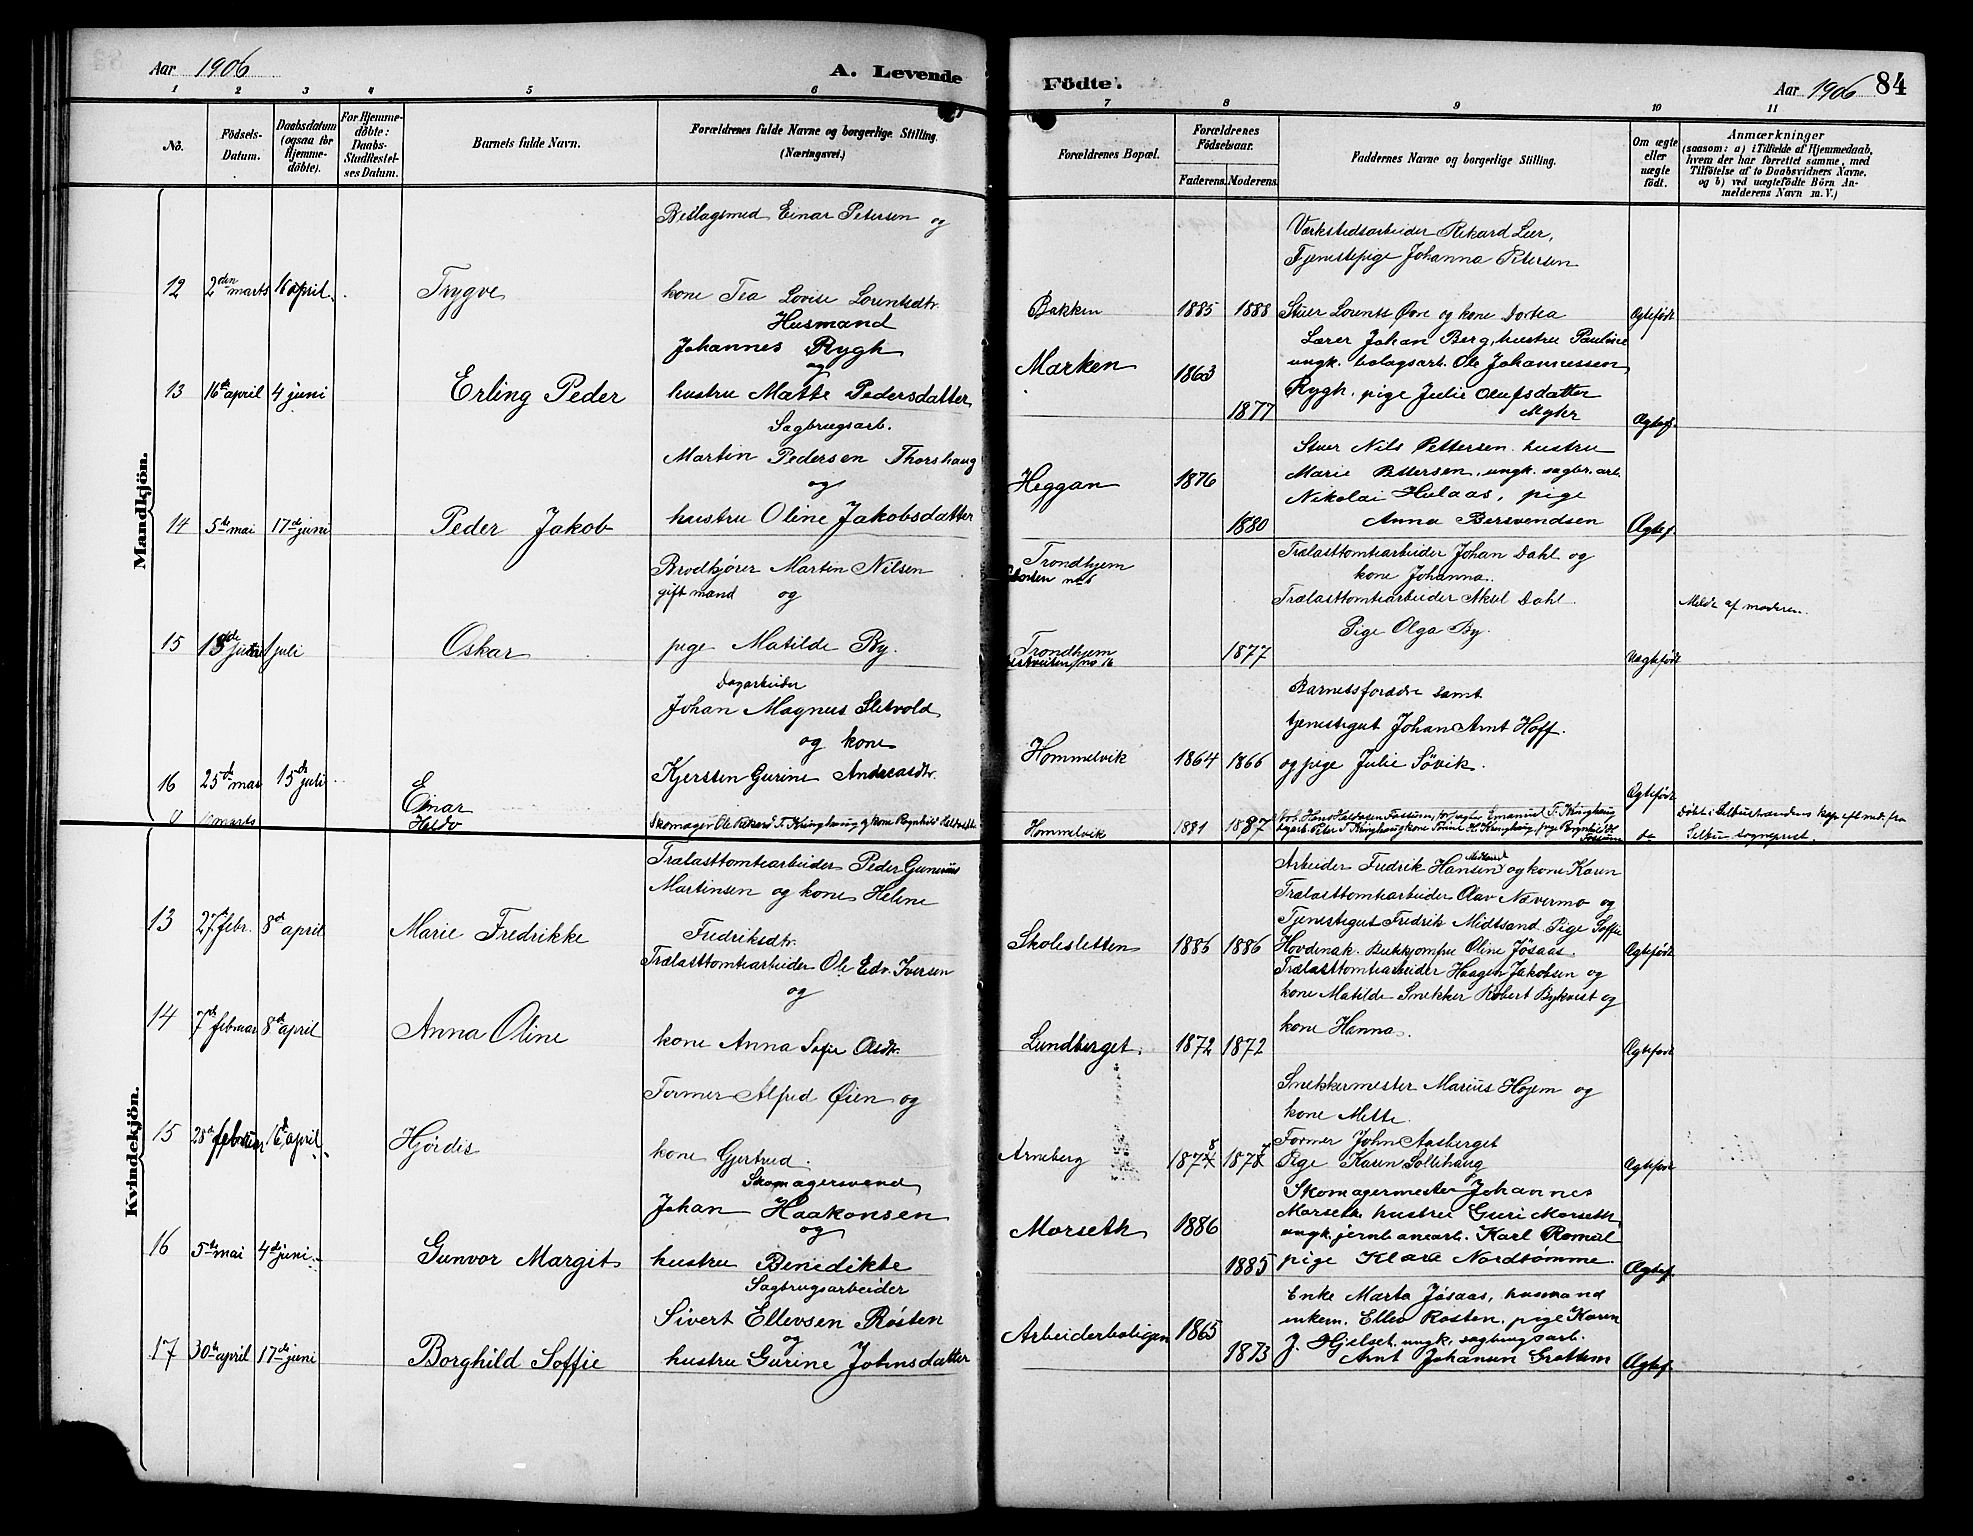 Aar 1906
A. Levende
Födte.
Aar 1906 84
1 2 3 4 5 6 7 8 9 10 11
No.
Födsels-Datum.
Daabsdatum (ogsaa for Hjemme-döbte).
For Hjemme-döbte: Daabs-Stadfestel-ses Datum.
Barnets fulde Navn.
Forældrenes fulde Navne og borgerlige Stilling.
(Næringsvei.)
Forældrenes Bopæl.
Forældrenes Födselsaar.
Faderens. Moderens.
Faddernes Navne og borgerlige Stilling.
Om ægte eller uægte födt.
Anmærkninger
(saasom: a) i Tilfælde af Hjemmedaab,
hvem der har forrettet samme, med
Tilföielse af to Daabsvidners Navne,
og b) ved uægtefödte Börn An-
melderens Navn m. V.)
Mandkjön.
Beslagsmed Einar Petersen og
Værkstedsarbeider Rikard Lier,
Tjenestepige Johanna Petersen
12 2den marts 16 april Trygve kone Tea Lovise Lorentsdtr. Bakken 1885 1888 Stuer Lorents Øvre og kone Dortea Ægtefødt
Husmand
Johannes Rygh
og
Marken 1863
Lærer Johan Berg, hustru Pauline
ungk. bolagsarb. Ole Johannessen
13 16de april 4 juni Erling Peder hustru Mætte Pedersdatter 1877 Rygh, pige Julie Olufsdatter
Myhr Ægtef.
Sagbrugsarb.
Martin Pedersen Thorshaug
og
Heggan 1876
Stuer Nils Pettersen, hustru
Marie Pettersen, ungk. sagbr. arb.
Nikolai Hulaas, pige
14 5te mai 17de juni Peder Jakob hustru Oline Jakobsdatter 1880 Anna Bersvendsen Ægtef.
Brodkjører Martin Nilsen
gift mand og
Trondhjem
Trælasttomtearbeider Johan Dahl og
kone Johanna.
Trælasttomtearbeider Aksel Dahl.
Melde af moderen.
15 juli Oskar pige Matilde By. Trondhjem 1877 Pige Olga By. Uægtefødt
Dagarbeider
Johan Magnus Sletvold
og kone
Barnetsforældre samt
tjenestegut Johan Arnt Hoff.
16 25de mai 15de juli Einar Kjersten Gurine Andreasdtr. Hommelvik 1864 1866 og pige Julie Søvik. Ægtefødt
0 marts Haldo Skomager Ole Rikard T. Kringhaug og kone Hommelvik 1881 1887 do
Selbu sogneprest.
Kvindekjön.
Trælasttomtearbeider Peder Gunerius
Martinsen og kone Helene
Arbeider Fredrik Hansen og kone Karen
Trælasttomtearbeider Olav Nævermo og
Tjenestegut Fredrik Midtsand. Pige Soffie
13 27de febr. 8de april Marie Fredrikke Fredriksdtr. Skolesletten 1885 1886 Hovdenak. Butikjomfru Oline Jøsaas Ægtefødt
Trælasttomtearbeider Ole Edv. Iversen
og
Trælasttomtearbeider Haagen Jakobsen og
kone Matilde Snekker Robert Bykvist og
14 7de februar 8de april Anna Oline kone Anna Sofie Olsdtr. Lundberget. 1872 1872 kone Hanna. Ægtefødt
Former Alfred Øien og
Snekkermester Marius Hojem og
kone Mette.
15 28de februar 16de april Hjørdis kone Gjertrud. Arneberg 1878 187 Former John Aasberget
Pige Karen Sollihaug Ægtefødt
Skomagersvend
Johan Haakonsen
og
Morseth 1886
Skomagermester Johannes
Morseth, hustru Guri Morseth,
ungk. jernbanearb. Karl Romul
16 5te mai 4de juni Gunvor Margit hustru Benedikte 1885 pige Klara Nordtømme Ægtef.
Sagbrugsarbeider
Sivert Ellevsen Røsten
og
Arbeiderboligen 1865
Enke Marta Jøsaas, husmand
enkem. Ellev Røsten, pige Karen
J. Hjelset, ungk. sagbrugsarb.
17 30te april 17de juni Borghild Soffie hustru Gurine Johnsdatter 1873 Arnt Johansen Grøttem Ægtef.